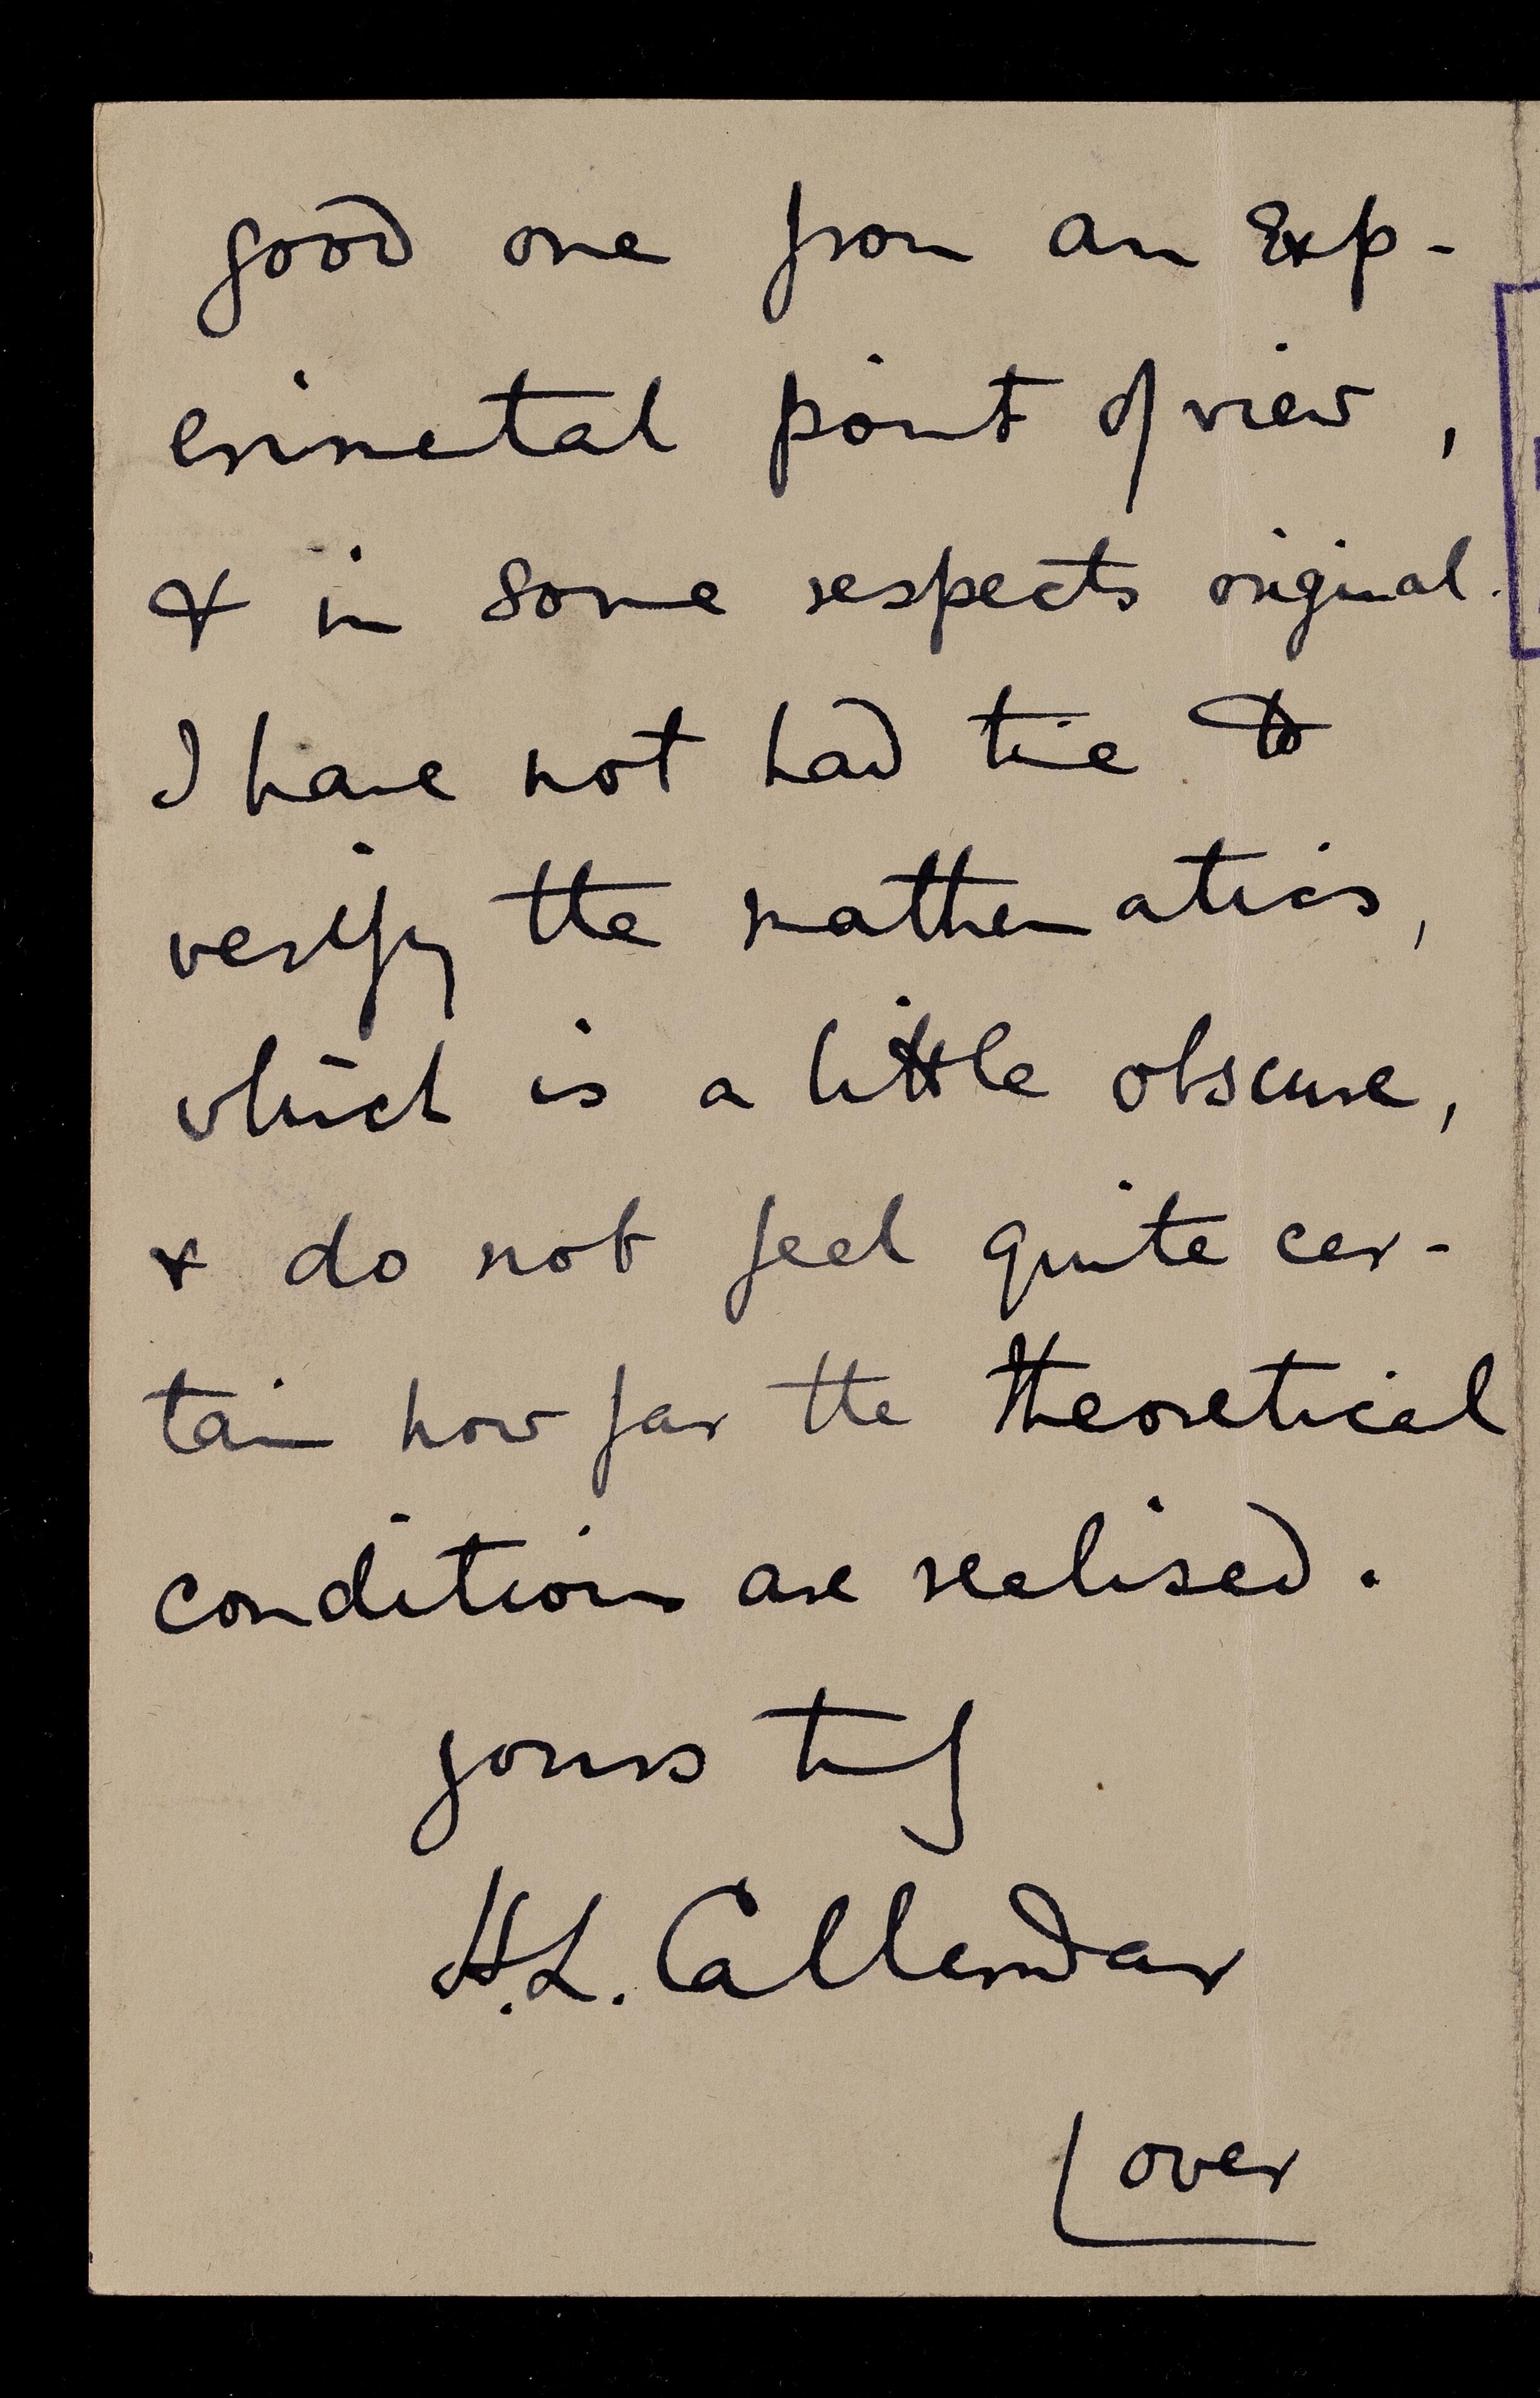 good one from an Exp-
erimental point of view,
& in some respects original.
I have not had time to
verify the mathematics,
which is a little obscure,
& do not feel quite cer-
tain how far the theoretical
conditions are realised.
yours truly
H.L. Callendar
over